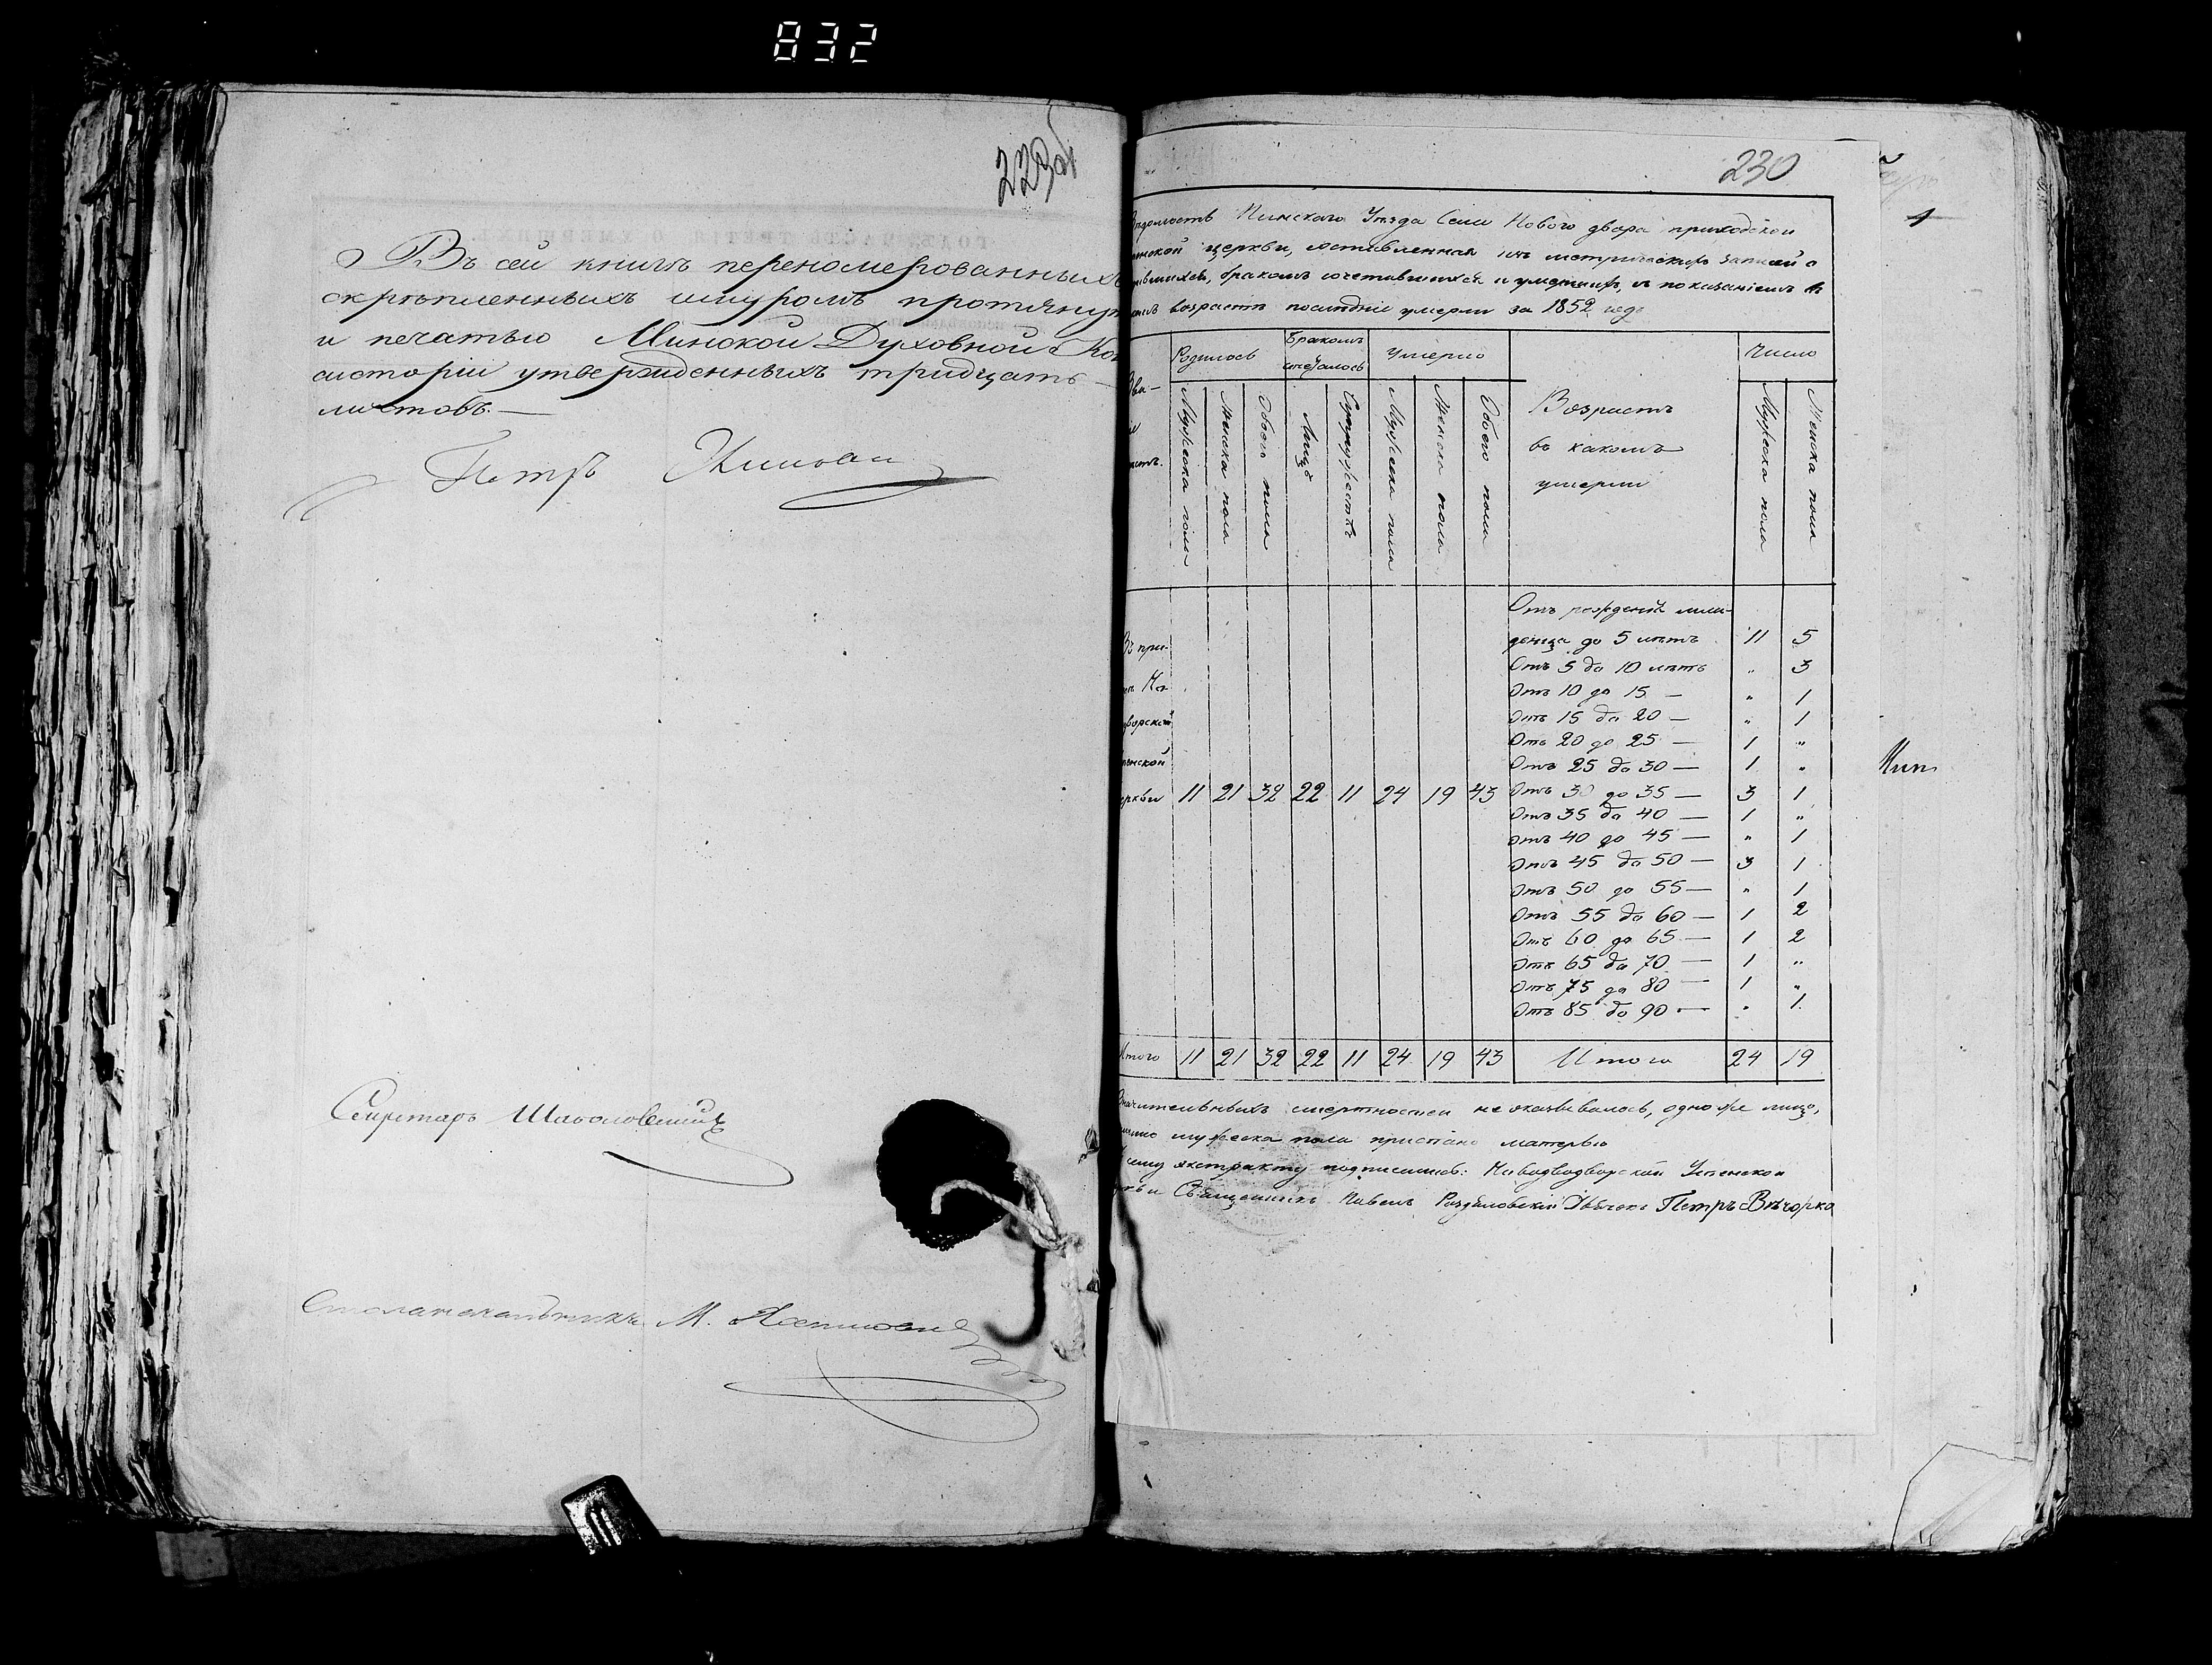 832
229об
Въ сей книгѣ переномерованныхъ
скрѣпленныхъ шнуромъ протяну
и печатью Минской Духовной Кон
систоріи утвержденныхъ тридцать —
листовъ. —
Петръ
Секретарь
Столоначальникъ М.
230
1
Вѣдомость Пинскаго Уѣзда Села Нового двора приходской
церкви, составленная изъ метрическихъ записей о
бракомъ сочетавшихся и умершихъ, съ показаніемъ въ
возрастѣ послѣдніе умерли за 1852 годъ
Родилось Бракомъ Умерло Число
Мужеска пола Женска пола Обоего пола Лицъ Супружествъ Мужеска пола Женска пола Обоего пола Возрастъ въ какомъ умерли Мужеска пола Женска пола
Отъ рожденія мла-
денца до 5 лѣтъ 11 5
Отъ 5 до 10 лѣтъ " 3
Отъ 10 до 15 — " 1
Отъ 15 до 20 — " 1
Отъ 20 до 25 — 1 "
Отъ 25 до 30 — 1 "
церкви 11 21 32 22 11 24 19 43 Отъ 30 до 35 — 3 1
Отъ 35 до 40 — 1 "
Отъ 40 до 45 — " 1
Отъ 45 до 50 — 3 1
Отъ 50 до 55 — " 1
Отъ 55 до 60 — 1 2
Отъ 60 до 65 — 1 2
Отъ 65 до 70 — 1 "
Отъ 75 до 80 — 1 "
Отъ 85 до 90 — " 1
Итого 11 21 32 22 11 24 19 43 Итого 24 19
смертностей не оказывалось, одно же лицо,
мужеска пола приспано матерью
сему экстракту подписались: Новодворской Успенской
Священникъ Павелъ Дьячокъ Петръ Вѣчорко